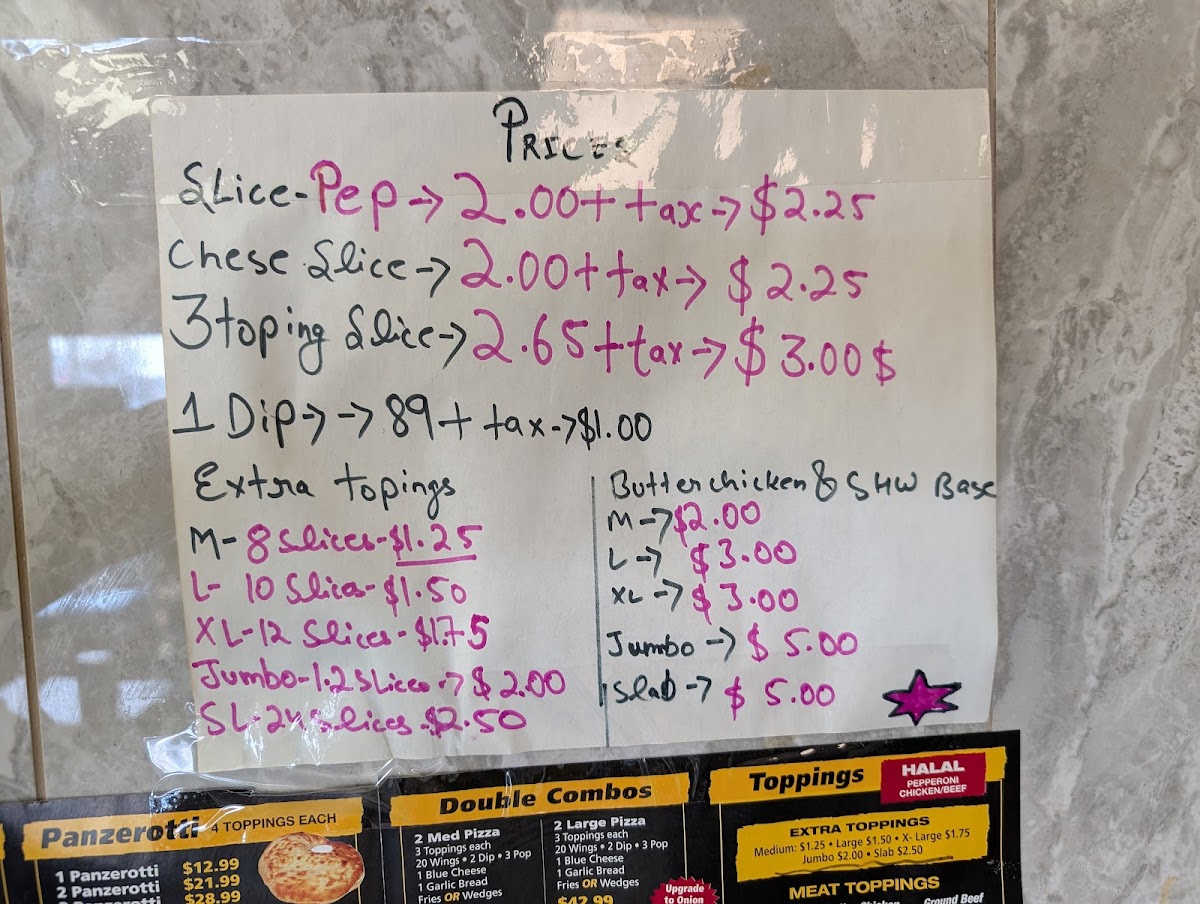 PRICES
Slice-Pep → 2.00+ tax → $2.25
Chese Slice → 2.00+ tax → $2.25
3 toping Slice → 2.65+tax → $3.00$
1 Dip → → 89+ tax → $1.00
Extra topings
M- 8 Slices-$1.25
L- 10 Slices-$1.50
XL-12 Slices-$1.75
Jumbo-12 Slices → $2.00
SL-24 Slices-$2.50
Butterchicken & SHW Base
M → $2.00
L → $3.00
XL → $3.00
Jumbo → $5.00
Slab → $5.00
Panzerotti 4 TOPPINGS EACH
1 Panzerotti $12.99
2 Panzerotti $21.99
3 Panzerotti $28.99
Double Combos
2 Med Pizza
3 Toppings each
20 Wings • 2 Dip • 3 Pop
1 Blue Cheese
1 Garlic Bread
Fries OR Wedges
2 Large Pizza
3 Toppings each
20 Wings • 2 Dip • 3 Pop
1 Blue Cheese
1 Garlic Bread
Fries OR Wedges
$42.99
Upgrade
to Onion
Toppings
HALAL
PEPPERONI
CHICKEN/BEEF
EXTRA TOPPINGS
Medium: $1.25 • Large $1.50 • X- Large $1.75
Jumbo $2.00 • Slab $2.50
MEAT TOPPINGS
Chicken Ground Beef